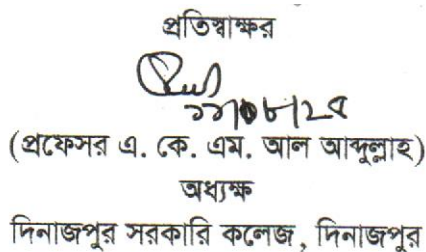 প্রতিস্বাক্ষর
(প্রফেসর এ. কে. এম. আল আব্দুল্লাহ)
অধ্যক্ষ
দিনাজপুর সরকারি কলেজ, দিনাজপুর